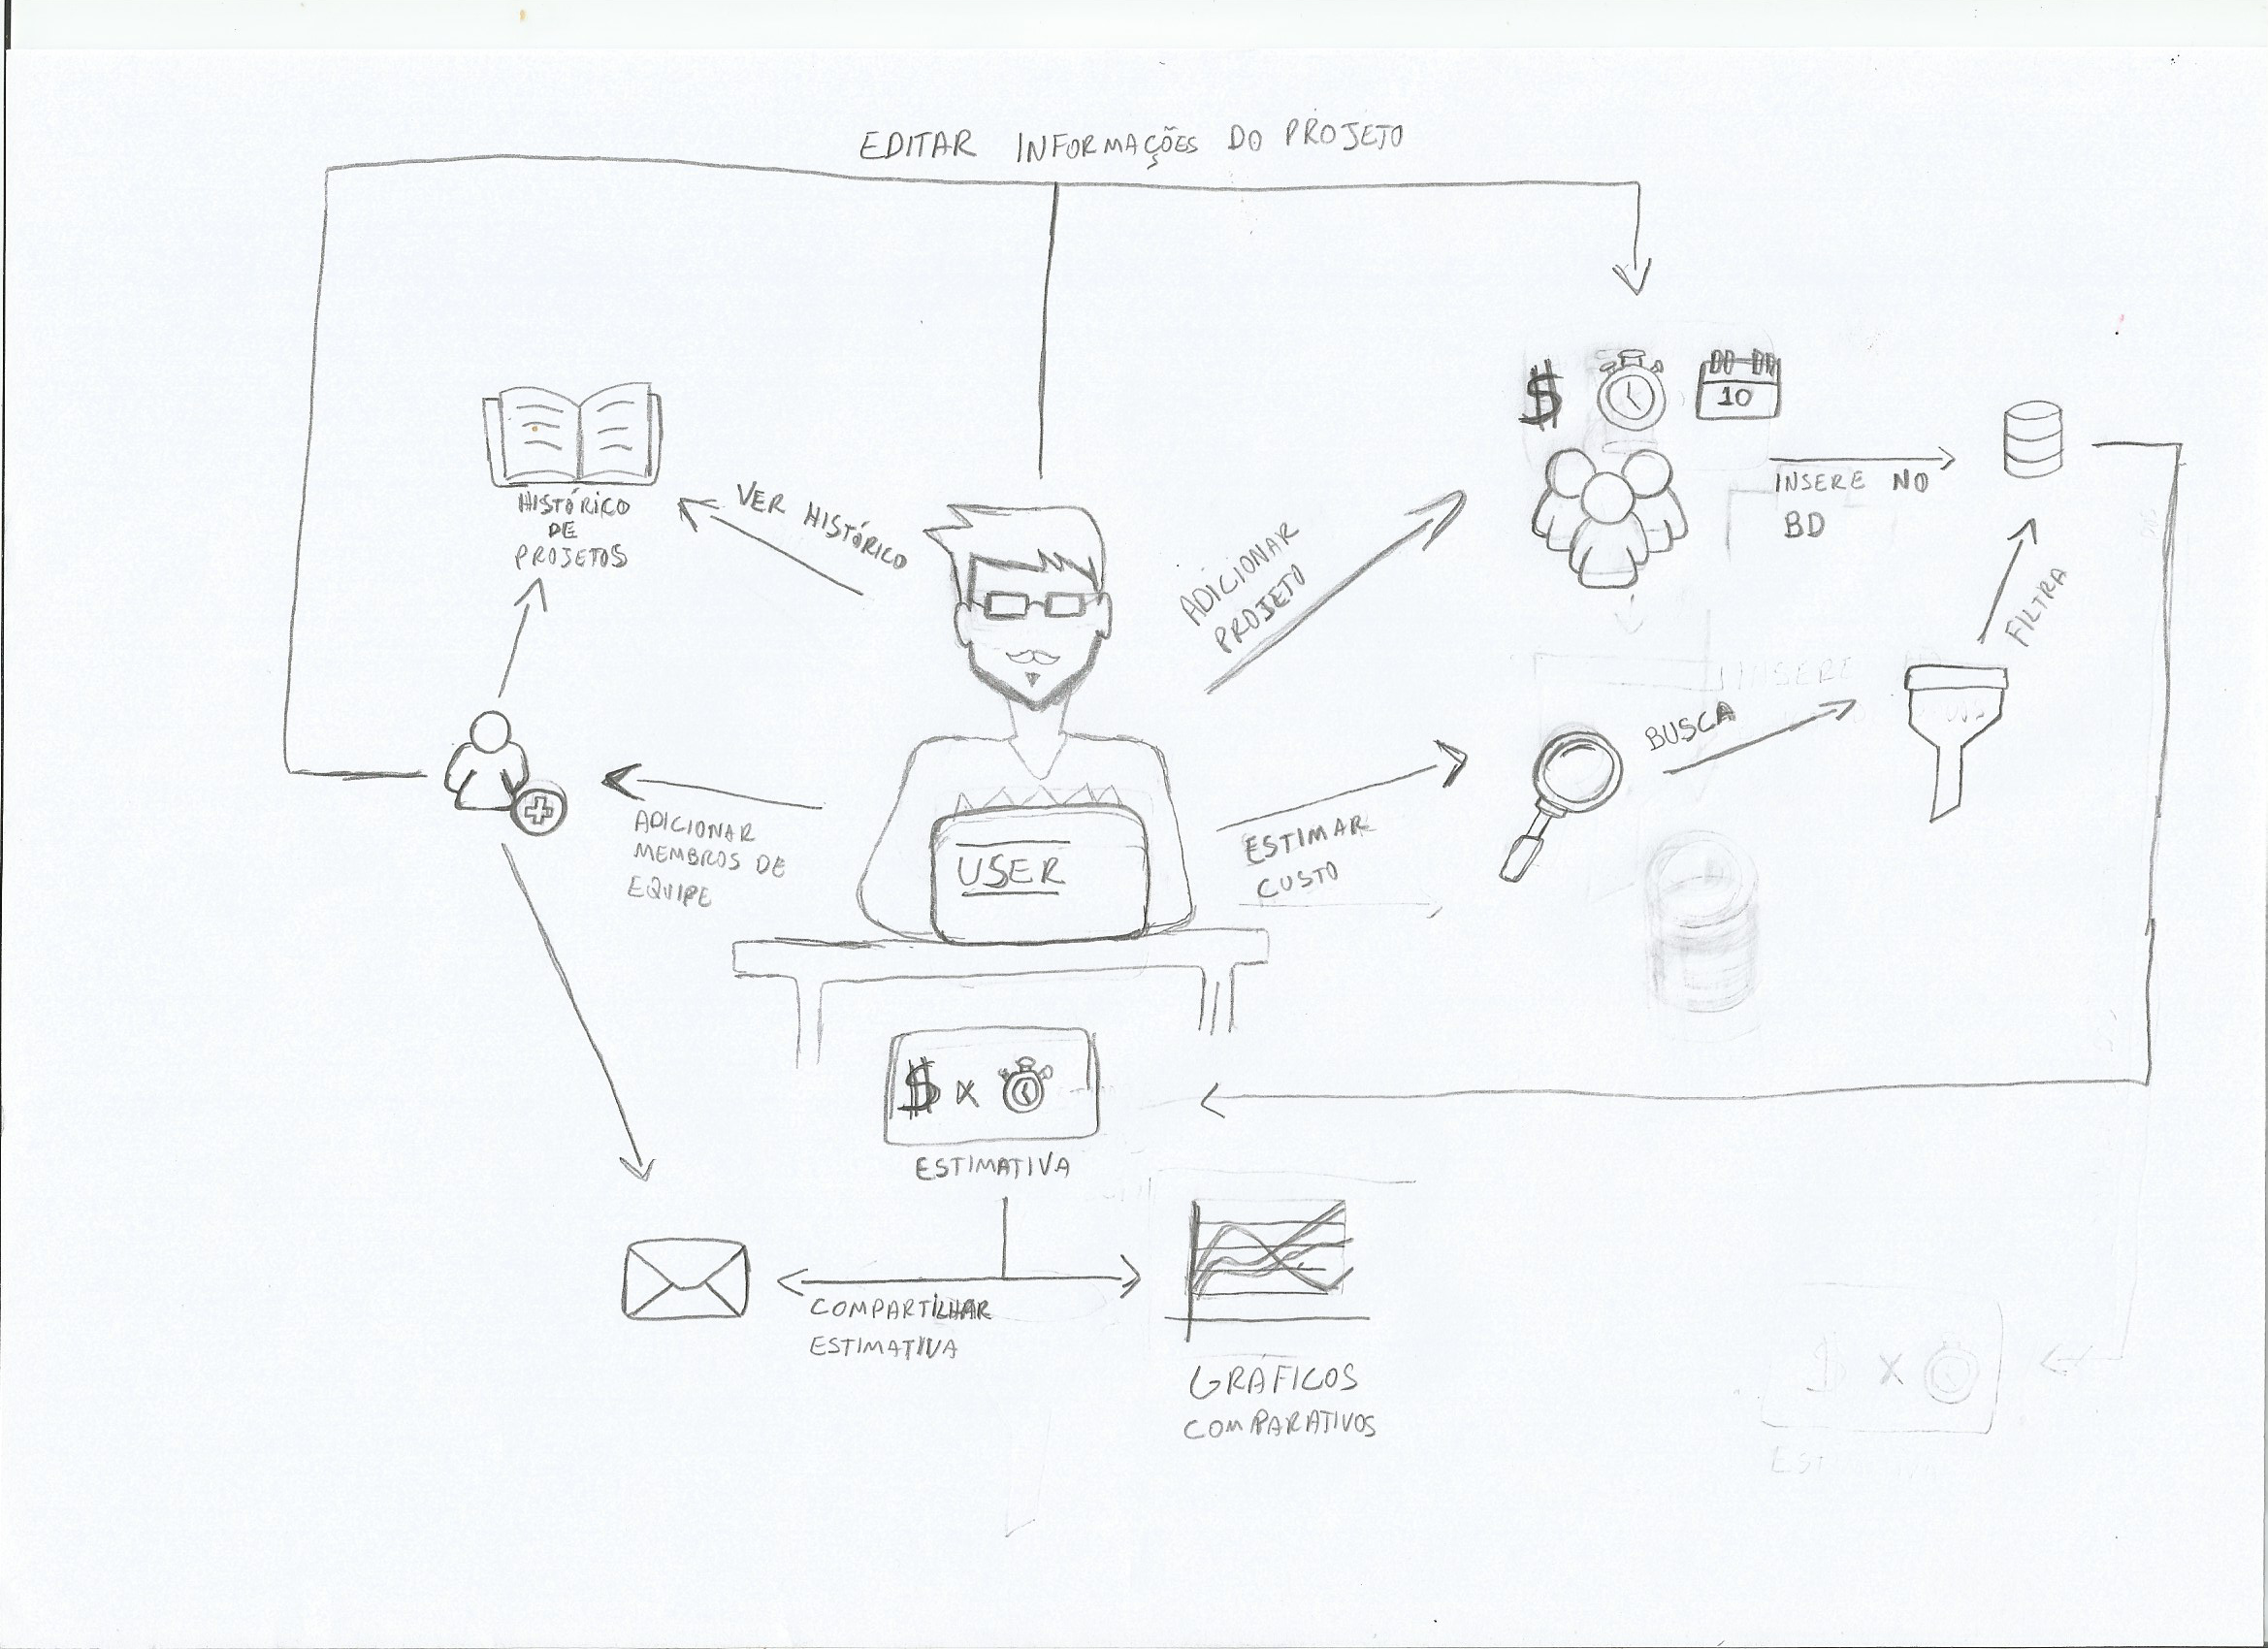 EDITAR INFORMAÇÕES DO PROJETO
$
10
HISTÓRICO
DE
PROJETOS
VER HISTÓRICO
ADICIONAR
PROJETO
INSERE NO
BD
FILTRA
INSERE
BUSCA
ADICIONAR
MEMBROS DE
EQUIPE
USER
ESTIMAR
CUSTO
$ x
ESTIMATIVA
COMPARTILHAR
ESTIMATIVA
GRÁFICOS
COMPARATIVOS
$ X